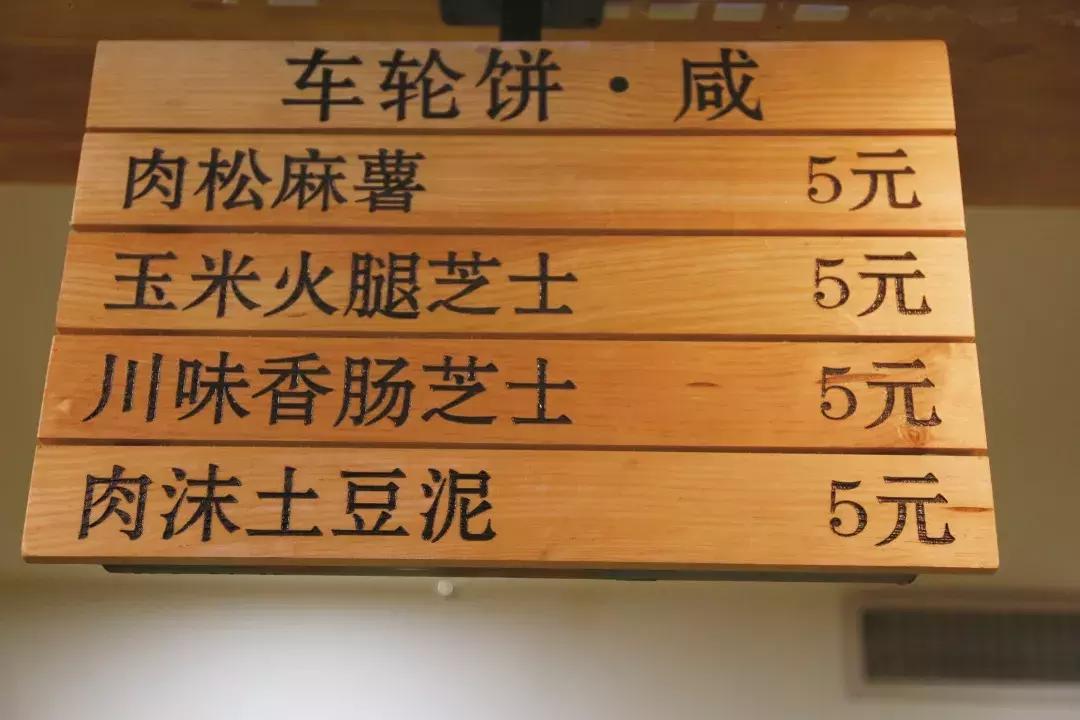 车轮饼·咸
肉松麻薯 5元
玉米火腿芝士 5元
川味香肠芝士 5元
肉沫土豆泥 5元